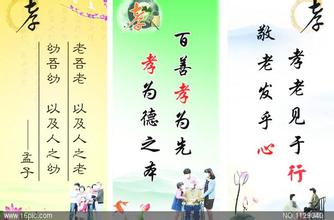 孝
老吾老 以及人之老
幼吾幼 以及人之幼
——孟子
孝
百善孝为先
孝为德之本
孝
孝老见于行
敬老发乎心
www.16pic.com